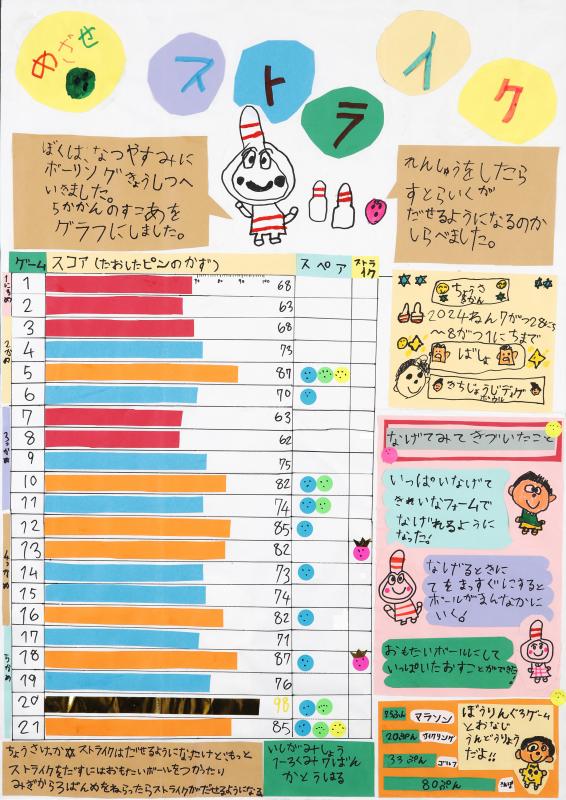 めざせ
ストライク
ぼくは、なつやすみに
ボーリングきょうしつへ
いきました。
5かかんのすこあを
グラフにしました。
れんしゅうをしたら
すとらいくが
だせるようになるのか
しらべました。
ゲーム スコア(たおしたピンのかず) スペア ストライク
1にちめ
1 68
2 63
3 68
2かめ
4 75
5 87
6 70
3っかめ
7 63
8 62
9 75
10 82
11 74
4っかめ
12 85
13 82
14 73
15 74
16 82
5かめ
17 71
18 87
19 76
20 98
21 85
ちょうさ
きかん
2024ねん7がつ28にち
~8がつ1にちまで
ばしょ
なげてみてきづいたこと
いっぱいなげて
きれいなフォームで
なげれるように
なった!
なげるときに
てをまっすぐにすると
ボールがまんなかに
いく!
おもたいボールにして
いっぱいたおすことができた。
25ぷん マラソン
20ぷん サイクリング
33ぷん ゴルフ
80ぷん さんぽ
ぼうりんぐ3ゲーム
とおなじ
うんどうりょう
だよ!!
ちょうさけっか☆ストライクはだせるようになったけどもっと
ストライクをだすにはおもたいボールをつかったり
みぎから3ばんめをねらったらストライクがだせるようになる
いしがみしょう
1-3くみ7ばん
かとうはる